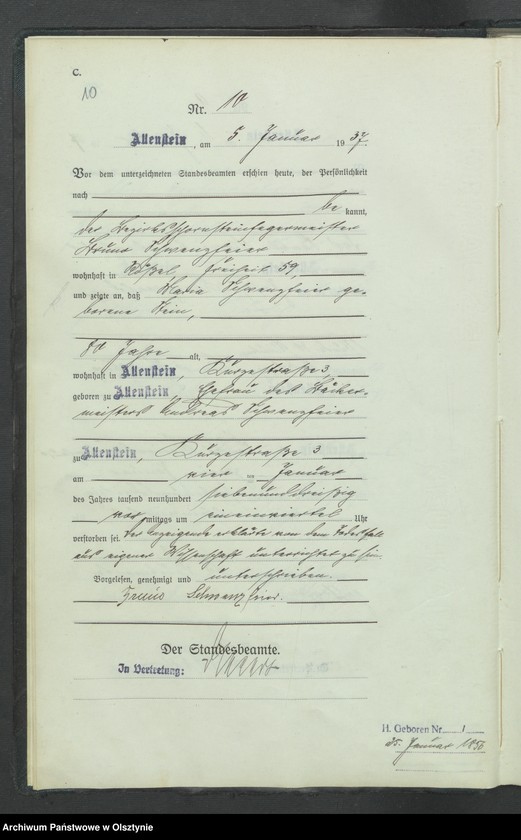 C.
10
Nr. 10
Allenstein, am 5. Januar 1937.
Vor dem unterzeichneten Standesbeamten erschien heute, der Persönlichkeit
nach
be kannt,
der Bezirksschornsteinfegermeister
Bruno Schwenzfeier
wohnhaft in Rößel, Freiheit 59,
und zeigte an, daß Maria Schwenzfeier ge-
borene Hein,
80 Jahre alt,
wohnhaft in Allenstein, Kurzestraße 3
geboren zu Allenstein, Ehefrau des Bäcker-
meisters Andreas Schwenzfeier
zu Allenstein, Kurzestraße 3
am vier ten Januar
des Jahres tausend neunhundert siebenunddreißig
vor mittags um eineinviertel Uhr
verstorben sei. Der Anzeigende erklärte von dem Todesfall
aus eigener Wissenschaft unterrichtet zu sein.
Vorgelesen, genehmigt und unterschrieben.
Bruno Schwenzfeier.
Der Standesbeamte.
In Vertretung:
H. Geboren Nr. 1
25. Januar 1856
Archiwum Państwowe w Olsztynie